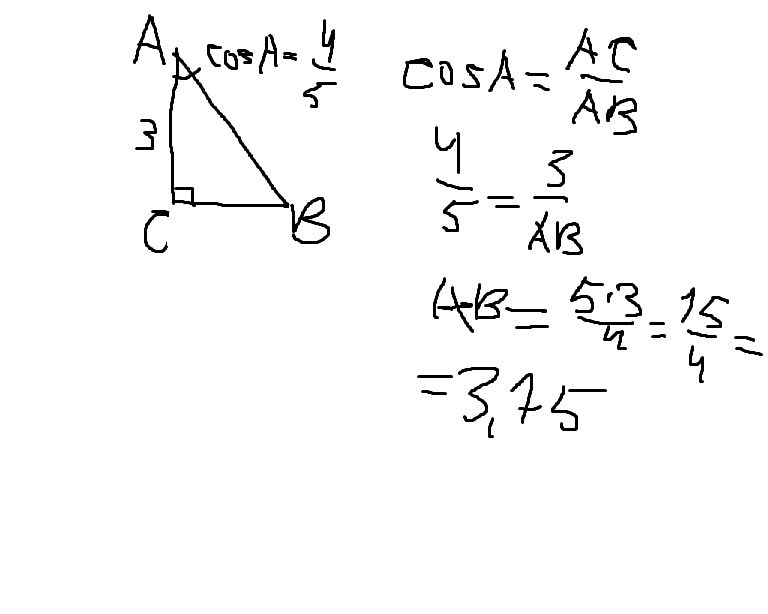 A cosA = 4/5
3
C B
cosA = AC/AB
4/5 = 3/AB
AB = 5·3/4 = 15/4 =
= 3,75